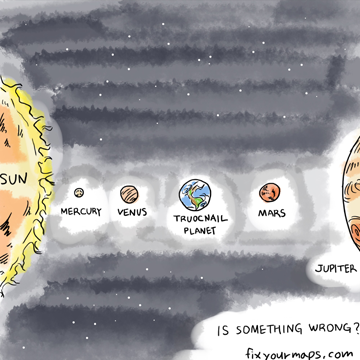 SUN
MERCURY
VENUS
TRUOCNAIL
PLANET
MARS
JUPITER
IS SOMETHING WRONG?
fixyourmaps.com